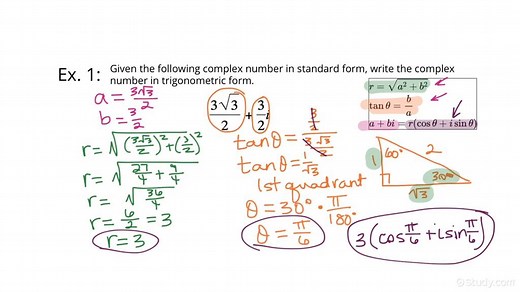 Ex. 1:
Given the following complex number in standard form, write the complex
number in trigonometric form.
a = 3√3/2
b = 3/2
r = √((3√3/2)² + (3/2)²)
r = √(27/4 + 9/4)
r = √(36/4)
r = 6/2 = 3
r = 3
3√3/2 + 3/2 i
tanθ = (3/2)/(3√3/2)
tanθ = 1/√3
1st quadrant
θ = 30° · π/180°
θ = π/6
r = √(a² + b²)
tan θ = b/a
a + bi = r(cos θ + i sin θ)
1
60°
2
30°
√3
3(cos π/6 + i sin π/6)
Study.com